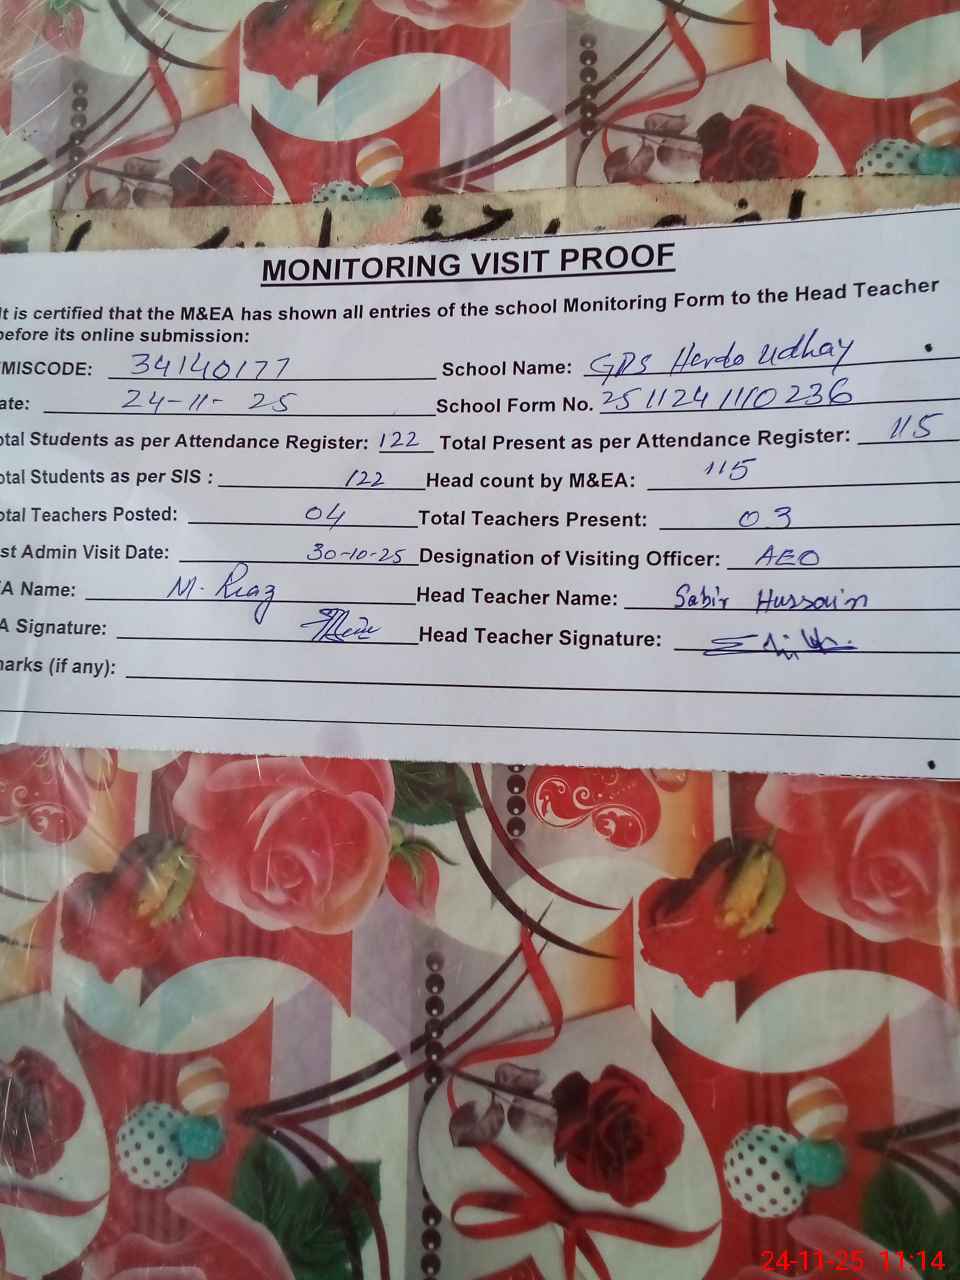 MONITORING VISIT PROOF
It is certified that the M&EA has shown all entries of the school Monitoring Form to the Head Teacher
before its online submission:
MISCODE: 34140177 School Name: GPS Herdo Udhay
ate: 24-11-25 School Form No. 2511241110236
otal Students as per Attendance Register: 122 Total Present as per Attendance Register: 115
otal Students as per SIS : 122 Head count by M&EA: 115
otal Teachers Posted: 04 Total Teachers Present: 03
st Admin Visit Date: 30-10-25 Designation of Visiting Officer: AEO
A Name: M. Riaz Head Teacher Name: Sabir Hussain
A Signature: Head Teacher Signature:
arks (if any):
24-11-25 11:14